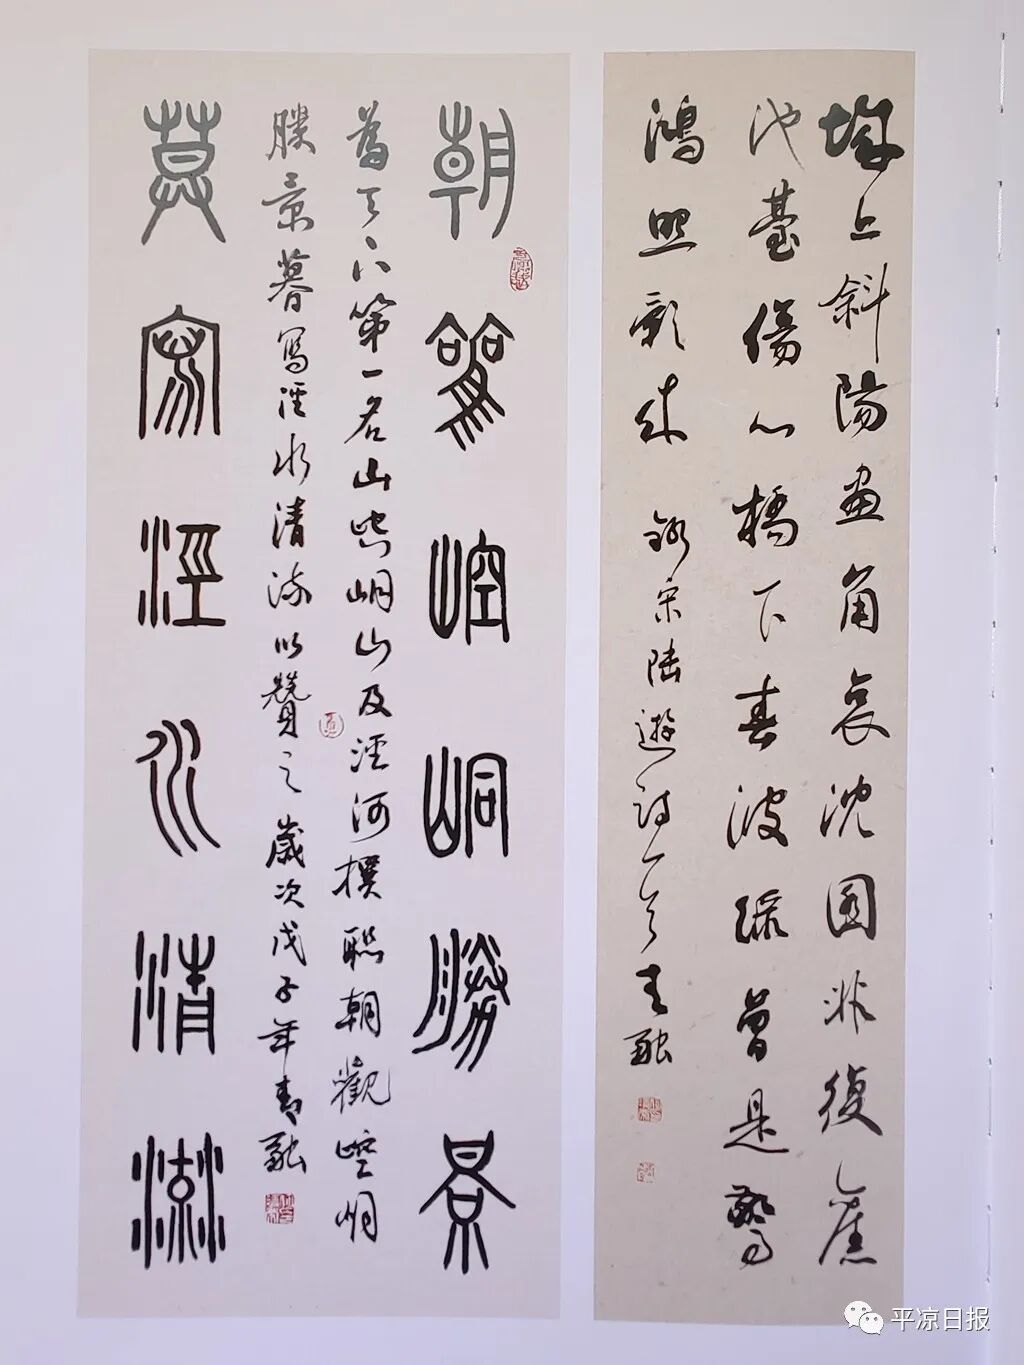 城上斜陽畫角哀沈園非復舊
池臺傷心橋下春波綠曾是驚
鴻照影來 錄宋陸遊詩一首 青融
朝觀崆峒勝景
為天下第一名山崆峒山及涇河撰聯朝觀崆峒
勝景暮寫涇水清流以贊之歲次戊子年青融
莫寫涇水清流
平凉日报